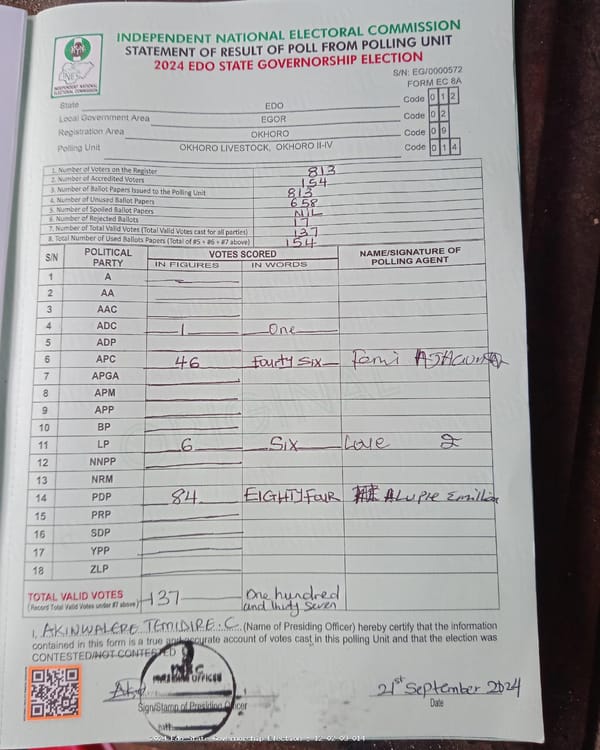 INDEPENDENT NATIONAL ELECTORAL COMMISSION
STATEMENT OF RESULT OF POLL FROM POLLING UNIT
2024 EDO STATE GOVERNORSHIP ELECTION
INEC
INDEPENDENT NATIONAL ELECTORAL COMMISSION
S/N: EG/0000572
FORM EC 8A
State EDO Code 0 1 2
Local Government Area EGOR Code 0 2
Registration Area OKHORO Code 0 9
Polling Unit OKHORO LIVESTOCK, OKHORO II-IV Code 0 1 4
1. Number of Voters on the Register 813
2. Number of Accredited Voters 154
3. Number of Ballot Papers Issued to the Polling Unit 813
4. Number of Unused Ballot Papers 658
5. Number of Spoiled Ballot Papers NIL
6. Number of Rejected Ballots 17
7. Number of Total Valid Votes (Total Valid Votes cast for all parties) 137
8. Total Number of Used Ballots Papers (Total of #5 + #6 + #7 above) 154
S/N POLITICAL PARTY VOTES SCORED NAME/SIGNATURE OF POLLING AGENT
IN FIGURES IN WORDS
1 A
2 AA
3 AAC
4 ADC 1 One
5 ADP
6 APC 46 Fourty Six Femi
7 APGA
8 APM
9 APP
10 BP
11 LP 6 Six Love
12 NNPP
13 NRM
14 PDP 84 EIGHTY FOUR
15 PRP
16 SDP
17 YPP
18 ZLP
TOTAL VALID VOTES 137 One hundred
(Record Total Valid Votes under #7 above) and thirty seven
I, AKINWALERE TEMIDIRE. C. (Name of Presiding Officer) hereby certify that the information
contained in this form is a true and accurate account of votes cast in this polling Unit and that the election was
CONTESTED/NOT CONTESTED
INEC
PRESIDING OFFICER
21st September 2024
Sign/Stamp of Presiding Officer Date
2024 Edo State Governorship Election : 12-02-09-014